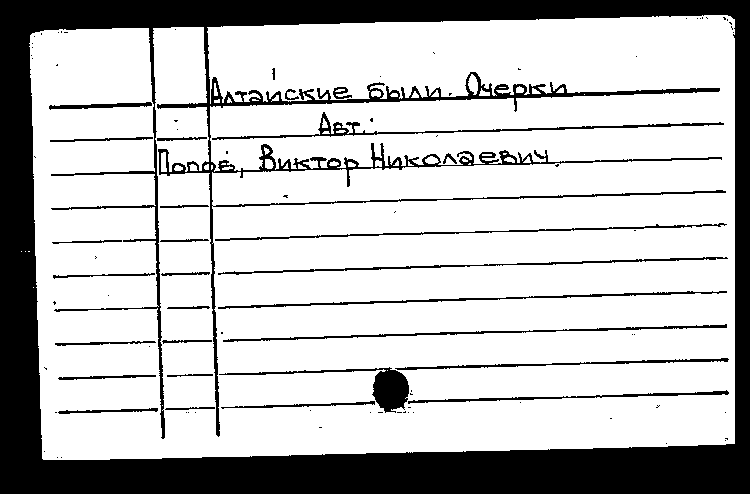 Алтайские были. Очерки
Авт.:
Попов, Виктор Николаевич.